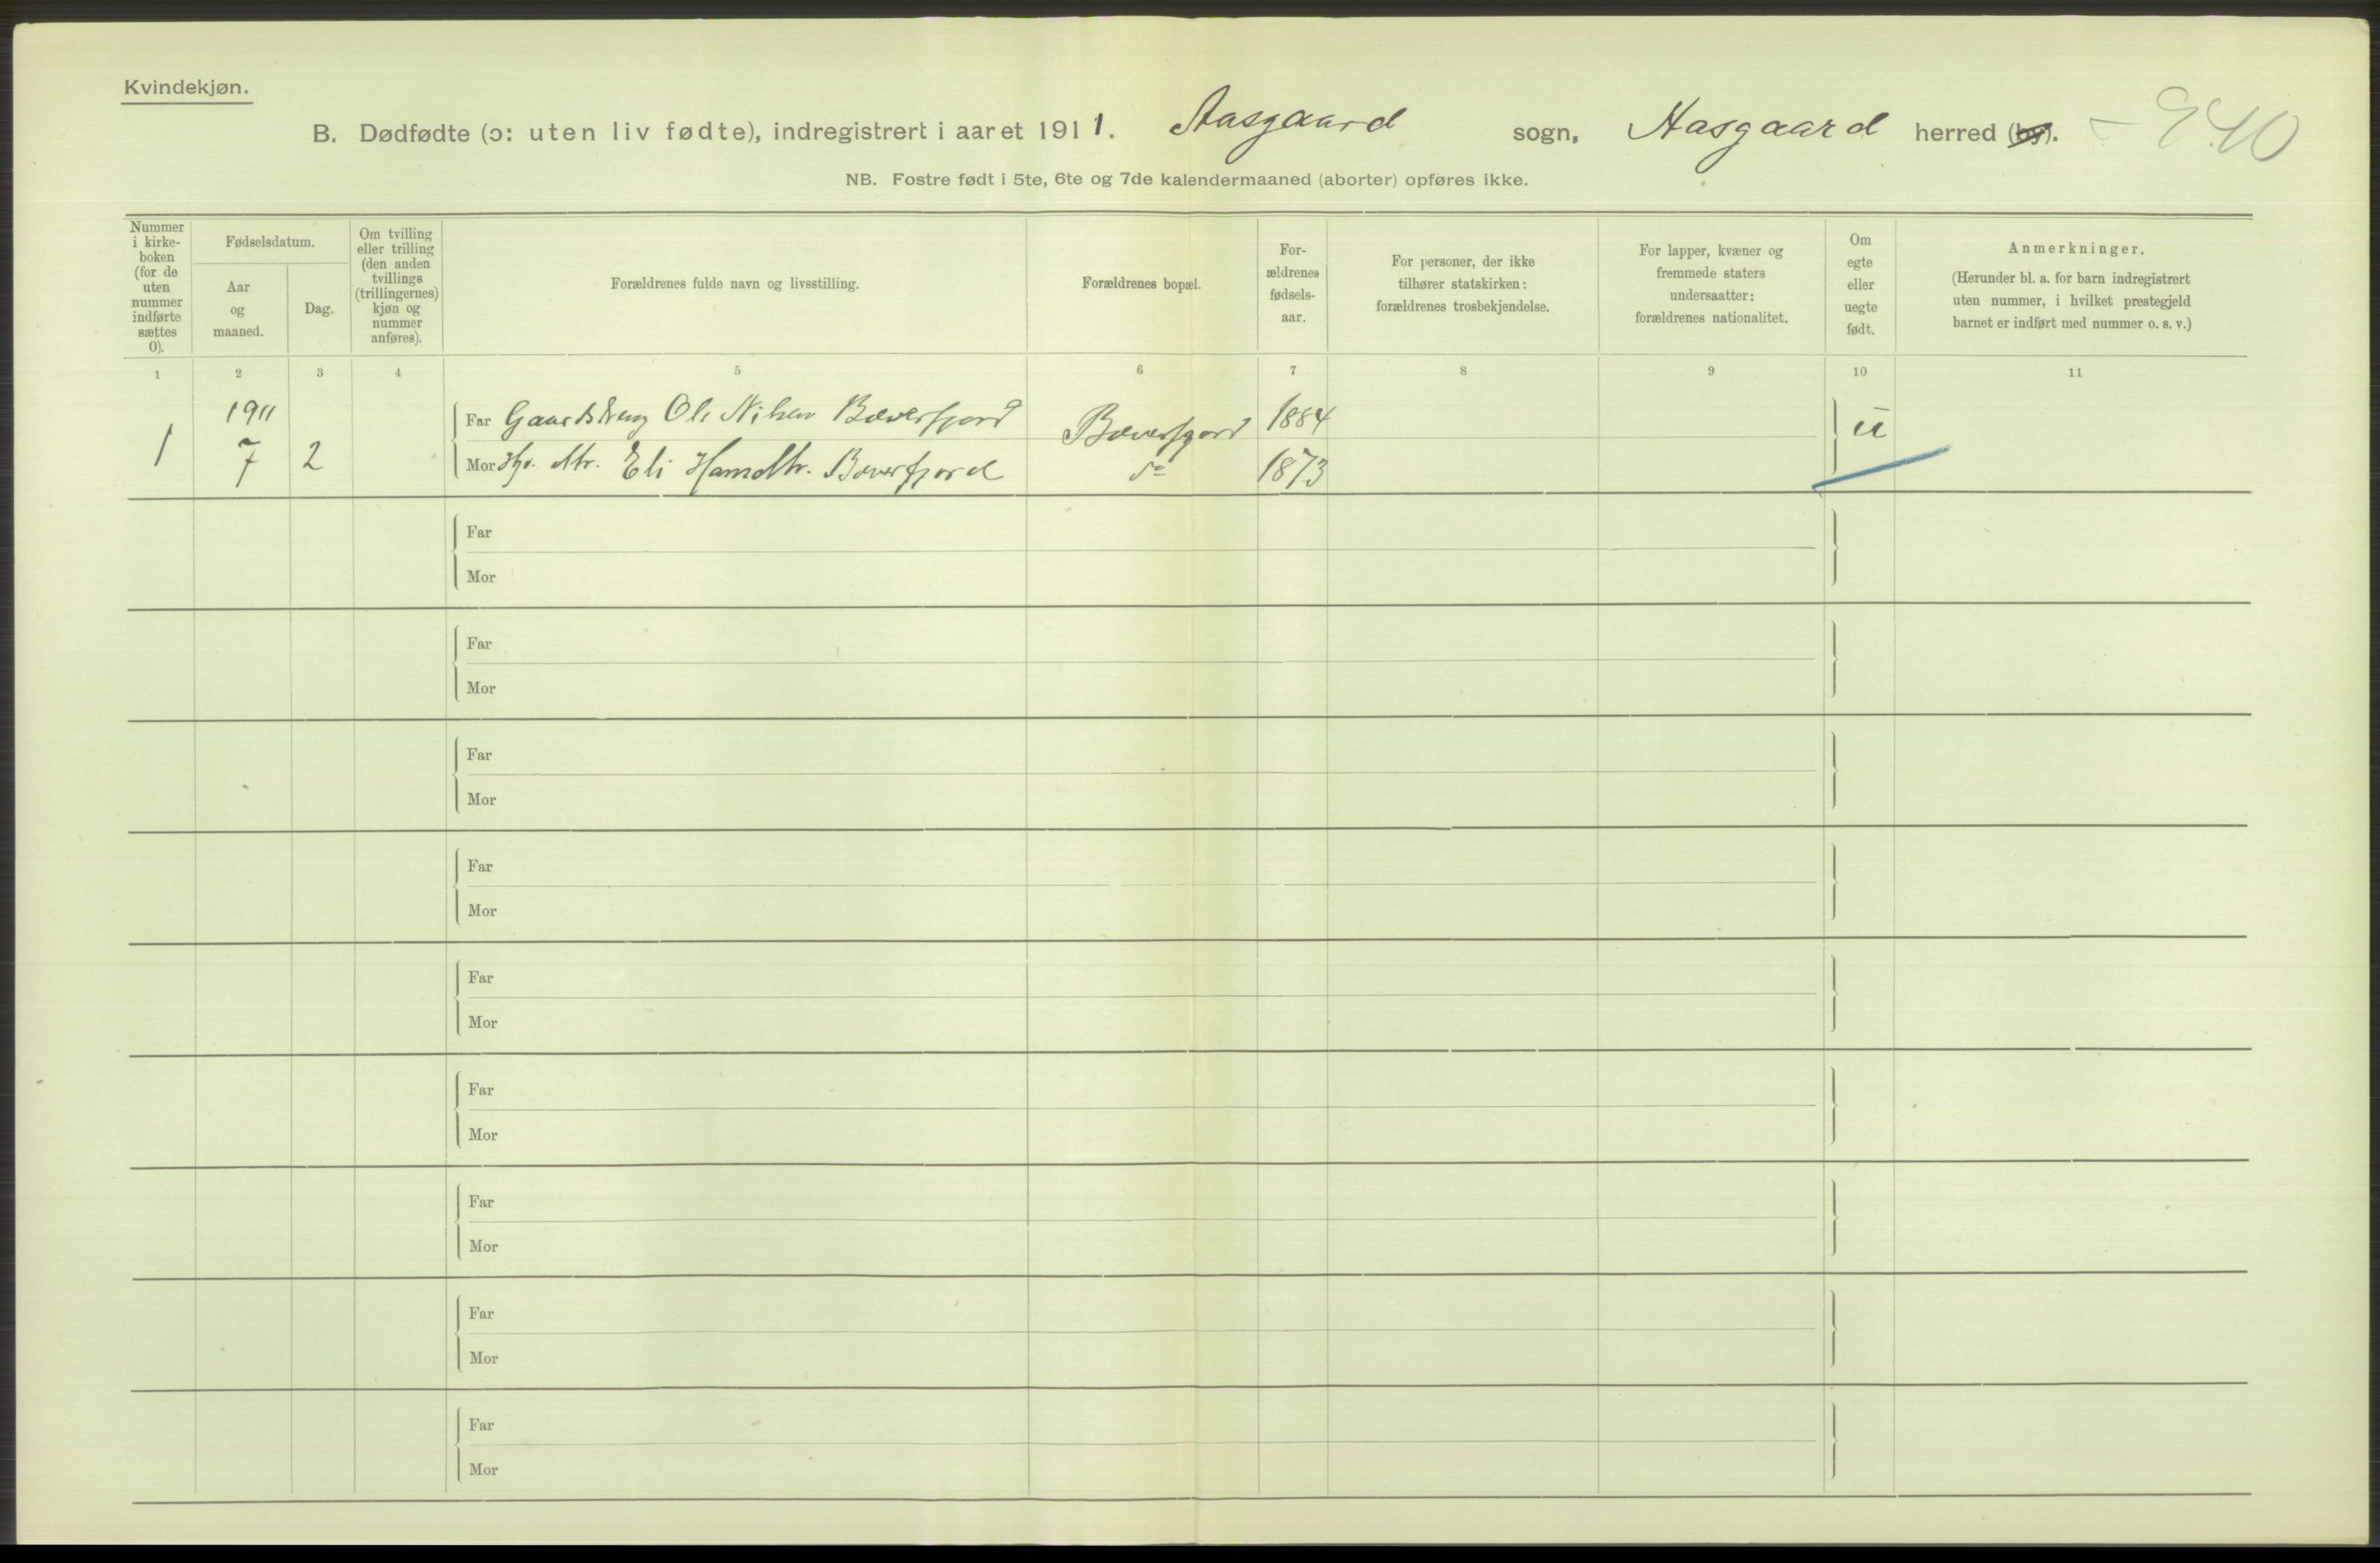 Kvindekjøn.
B. Dødfødte (ɔ: uten liv fødte), indregistrert i aaret 1911. Aasgaard sogn, Aasgaard herred (by). - 940
NB. Fostre født i 5te, 6te og 7de kalendermaaned (aborter) opføres ikke.
Nummer
i kirke-
boken
(for de
uten
nummer
indførte
sættes
0).
Fødselsdatum.
Aar
og
maaned.
Dag.
Om tvilling
eller trilling
(den anden
tvillings
(trillingernes)
kjøn og
nummer
anføres).
Forældrenes fulde navn og livsstilling.
Forældrenes bopæl.
For-
ældrenes
fødsels-
aar.
For personer, der ikke
tilhører statskirken:
forældrenes trosbekjendelse.
For lapper, kvæner og
fremmede staters
undersaatter:
forældrenes nationalitet.
Om
egte
eller
uegte
født.
Anmerkninger.
(Herunder bl. a. for barn indregistrert
uten nummer, i hvilket prestegjeld
barnet er indført med nummer o. s. v.)
1 2 3 4 5 6 7 8 9 10 11
1911
Far Ole Nilsen Bæverfjord Bæverfjord 1884 u
1 7 2
Mor Eli Bæverfjord do 1873
Far
Mor
Far
Mor
Far
Mor
Far
Mor
Far
Mor
Far
Mor
Far
Mor
Far
Mor
Far
Mor